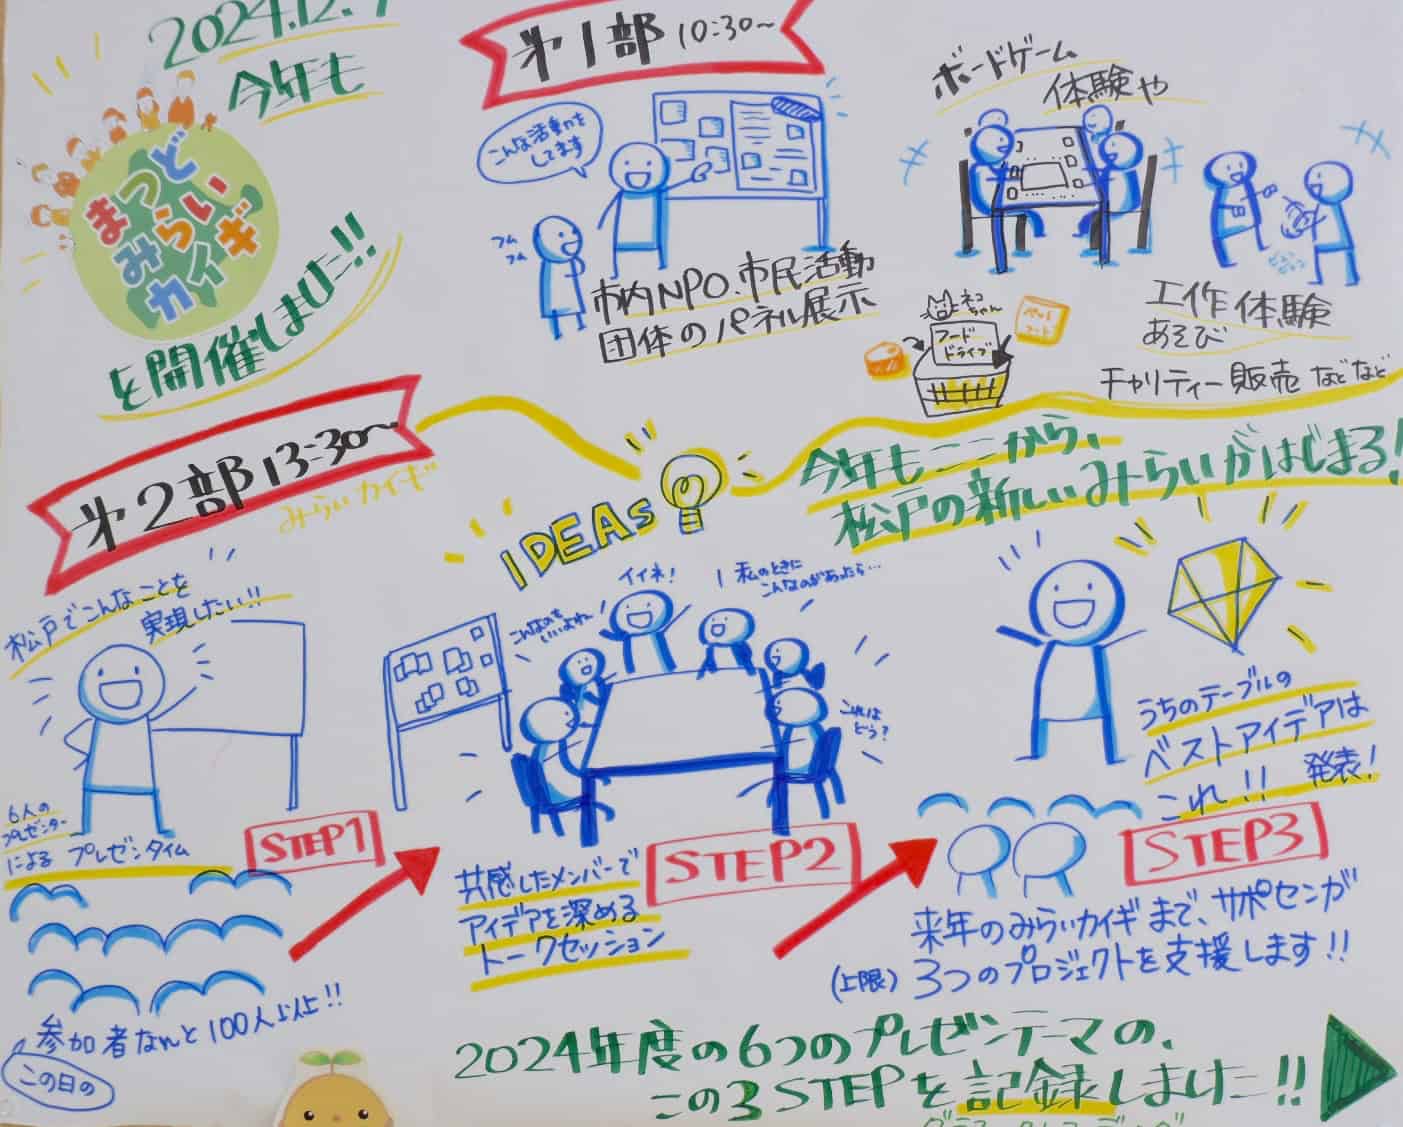 2024.12.7
今年も
まつど
みらい
カイギ
を開催しました!!
第1部 10:30~
こんな活動を
してます
フム
フム
市内NPO、市民活動
団体のパネル展示
ボードゲーム
体験や
工作体験
あそび
ネコ
ちゃん
フード
ドライブ
チャリティー販売 などなど
第2部 13:30~
みらいカイギ
IDEAs
今年もここから、
松戸の新しいみらいがはじまる!
松戸でこんなことを
実現したい!!
6人の
プレゼンター
による プレゼンタイム
STEP1
参加者なんと100人以上!!
この日の
こんなのも
いいよね~
イイネ!
私のときに
こんなのがあったら…
これは
どう?
STEP2
共感したメンバーで
アイデアを深める
トークセッション
うちのテーブルの
ベストアイデアは
これ!! 発表!
STEP3
来年のみらいカイギまで、サポセンが
(上限) 3つのプロジェクトを支援します!!
2024年度の6つのプレゼンテーマの、
この3STEPを記録しました!!